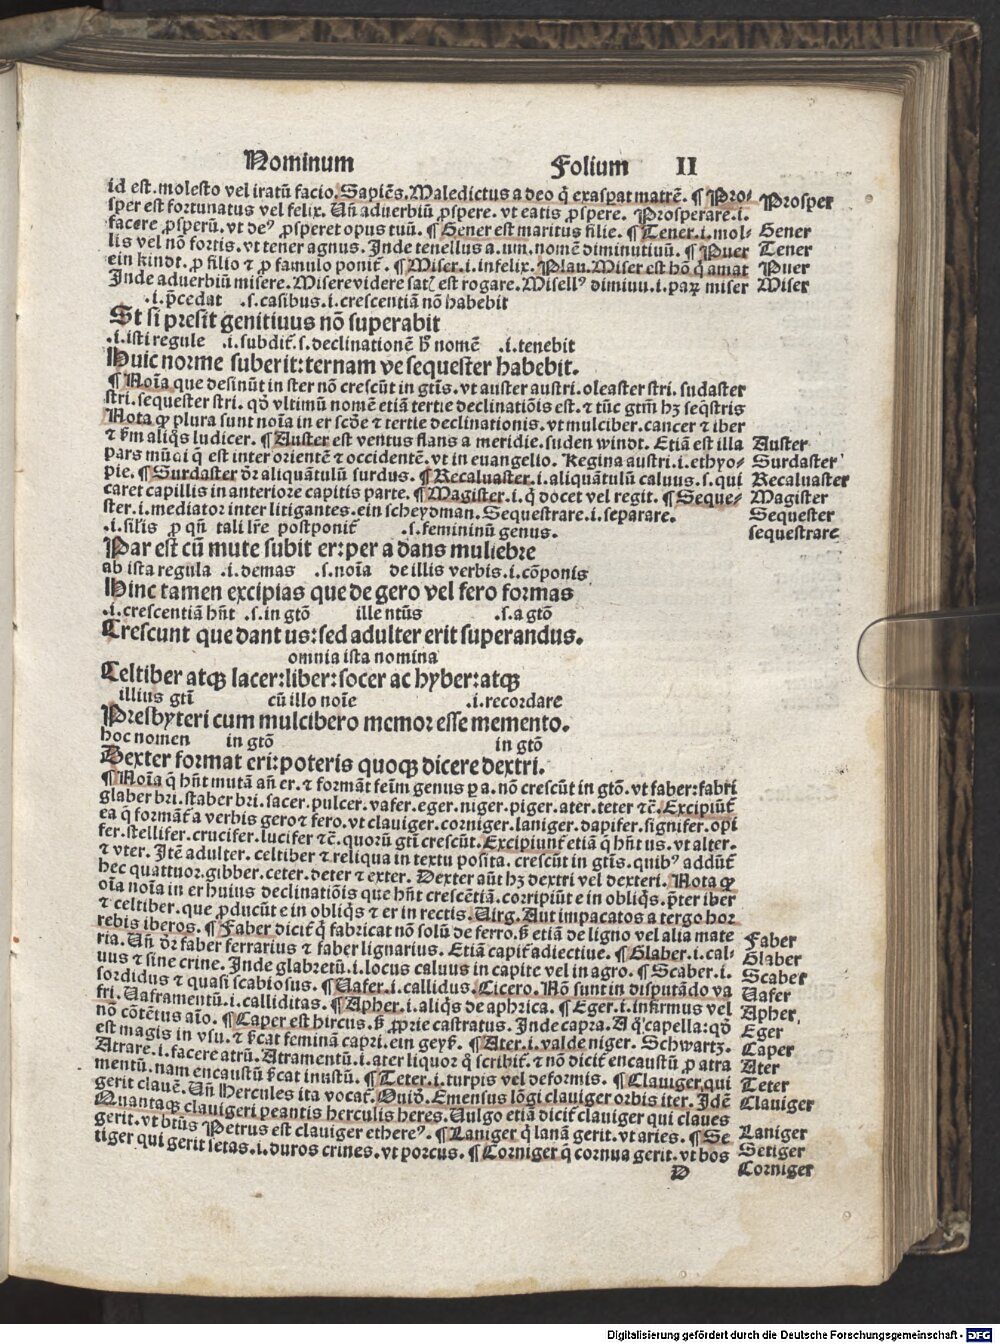 Nominum Folium II
id est. molesto vel iratū facio. Sapiēs. Maledictus a deo q̄ exaspat matrē. ¶ Pro- Prosper
sper est fortunatus vel felix. Uñ aduerbiū ꝓspere. vt eatis ꝓspere. Prosperare .i.
facere ꝓsperū. vt deꝰ ꝓsperet opus tuū. ¶ Gener est maritus filie. ¶ Tener .i. mol- Gener
lis vel nō fortis. vt tener agnus. Inde tenellus a. um. nomē diminutiuū. ¶ Puer Tener
ein kindt. ꝓ filio ⁊ ꝓ famulo ponit᷑. ¶ Miser .i. infelix. Plau. Miser est hō q̄ amat Puer
Inde aduerbiū misere. Misere videre est rogare. Misellꝰ dimiuu. i. miser Miser
.i. p̄cedat .s. casibus .i. crescentiā nō habebit
St si presit genitiuus nō superabit
.i. isti regule .i. subdit᷑ .s. declinationē nomē .i. tenebit
Huic norme suberit: ternam ve sequester habebit.
¶ Noīa que desinūt in ster nō crescūt in gtīs. vt auster austri. oleaster stri. sudaster
stri. sequester stri. qꝛ vltimū nomē etiā tertie declinatiōis est. ⁊ tūc gtm̄ hꝫ seq̄stris
Nota ꝙ plura sunt noīa in er scōe ⁊ tertie declinationis. vt mulciber. cancer ⁊ iber
⁊ aliq̄s ludicer. ¶ Auster est ventus flans a meridie. suden windt. Etiā est illa Auster
pars mūdi q̄ est inter orientē ⁊ occidentē. vt in euangelio. Regina austri .i. ethyo- Surdaster
pie. ¶ Surdaster dr̄ aliquātulū surdus. ¶ Recaluaster .i. aliquātulū caluus .s. qui Recaluaster
caret capillis in anteriore capitis parte. ¶ Magister .i. q̄ docet vel regit. ¶ Seque- Magister
ster .i. mediator inter litigantes. ein scheydman. Sequestrare .i. separare. Sequester
.i. sīl'is ꝓ qn̄ tali lr̄e postponit᷑ .s. femininū genus. sequestrare
Par est cū mute subit er: per a dans muliebre
ab ista regula .i. demas .s. noīa de illis verbis .i. cōponis
Hinc tamen excipias que de gero vel fero formas
.i. crescentiā hñt .s. in gtō ille ntūs .s. a gtō
Crescunt que dant us: sed adulter erit superandus.
omnia ista nomina
Celtiber atqꝫ lacer: liber: socer ac hyber: atqꝫ
illius gtī cū illo noīe .i. recordare
Presbyteri cum mulcibero memor esse memento.
hoc nomen in gtō in gtō
Dexter format eri: poteris quoqꝫ dicere dextri.
¶ Noīa q̄ hñt mutā añ er. ⁊ formāt feīm genus ꝑ a. nō crescūt in gtō. vt faber: fabri
glaber bri. scaber bri. sacer. pulcer. vafer. eger. niger. piger. ater. teter ⁊c̄. Excipiūt᷑
ea q̄ formāt᷑ a verbis gero ⁊ fero. vt clauiger. corniger. laniger. dapifer. signifer. opi
fer. stellifer. crucifer. lucifer ⁊c̄. quorū gtī crescūt. Excipiunt᷑ etiā q̄ hñt us. vt alter.
⁊ vter. Itē adulter. celtiber ⁊ reliqua in textu posita. crescūt in gtīs. quibꝰ addūt᷑
hec quattuor. gibber. ceter. deter ⁊ exter. Dexter aūt hꝫ dextri vel dexteri. Nota ꝙ
oīa noīa in er huius declinatiōis que hñt crescētiā. corripiūt e in obliq̄s. p̄ter iber
⁊ celtiber. que ꝓducūt e in obliq̄s ⁊ er in rectis. Uirg. Aut impacatos a tergo hor
rebis iberos. ¶ Faber dicit᷑ q̄ fabricat nō solū de ferro. etiā de ligno vel alia mate Faber
ria. Uñ dr̄ faber ferrarius ⁊ faber lignarius. Etiā capit᷑ adiectiue. ¶ Glaber .i. cal- Glaber
uus ⁊ sine crine. Inde glabretū .i. locus caluus in capite vel in agro. ¶ Scaber .i. Scaber
sordidus ⁊ quasi scabiosus. ¶ Uafer .i. callidus. Cicero. Nō sunt in disputādo va Uafer
fri. Uaframentū .i. calliditas. ¶ Apher .i. aliq̄s de aphrica. ¶ Eger .i. infirmus vel Apher.
nō cōtētus aīo. ¶ Caper est hircus. ꝓprie castratus. Inde capra. A q̄ capella: qꝛ Eger
est magis in vsu. ⁊ feminā capri. ein geyß. ¶ Ater .i. valde niger. Schwartz. Caper
Atrare .i. facere atrū. Atramentū .i. ater liquor q̄ scribit᷑. ⁊ nō dicit᷑ encaustū ꝓ atra Ater
mentū. nam encaustū inustū. ¶ Teter .i. turpis vel deformis. ¶ Clauiger, qui Teter
gerit clauē. Uñ Hercules ita vocat᷑. Ouid. Emensus lōgi clauiger orbis iter. Idē Clauiger
Quantaqꝫ clauigeri peantis herculis heres. Uulgo etiā dicit᷑ clauiger qui claues
gerit. vt btūs Petrus est clauiger ethereꝰ. ¶ Laniger q̄ lanā gerit. vt aries. ¶ Se Laniger
tiger qui gerit setas .i. duros crines. vt porcus. ¶ Corniger q̄ cornua gerit. vt bos Setiger
D Corniger
Digitalisierung gefördert durch die Deutsche Forschungsgemeinschaft - DFG